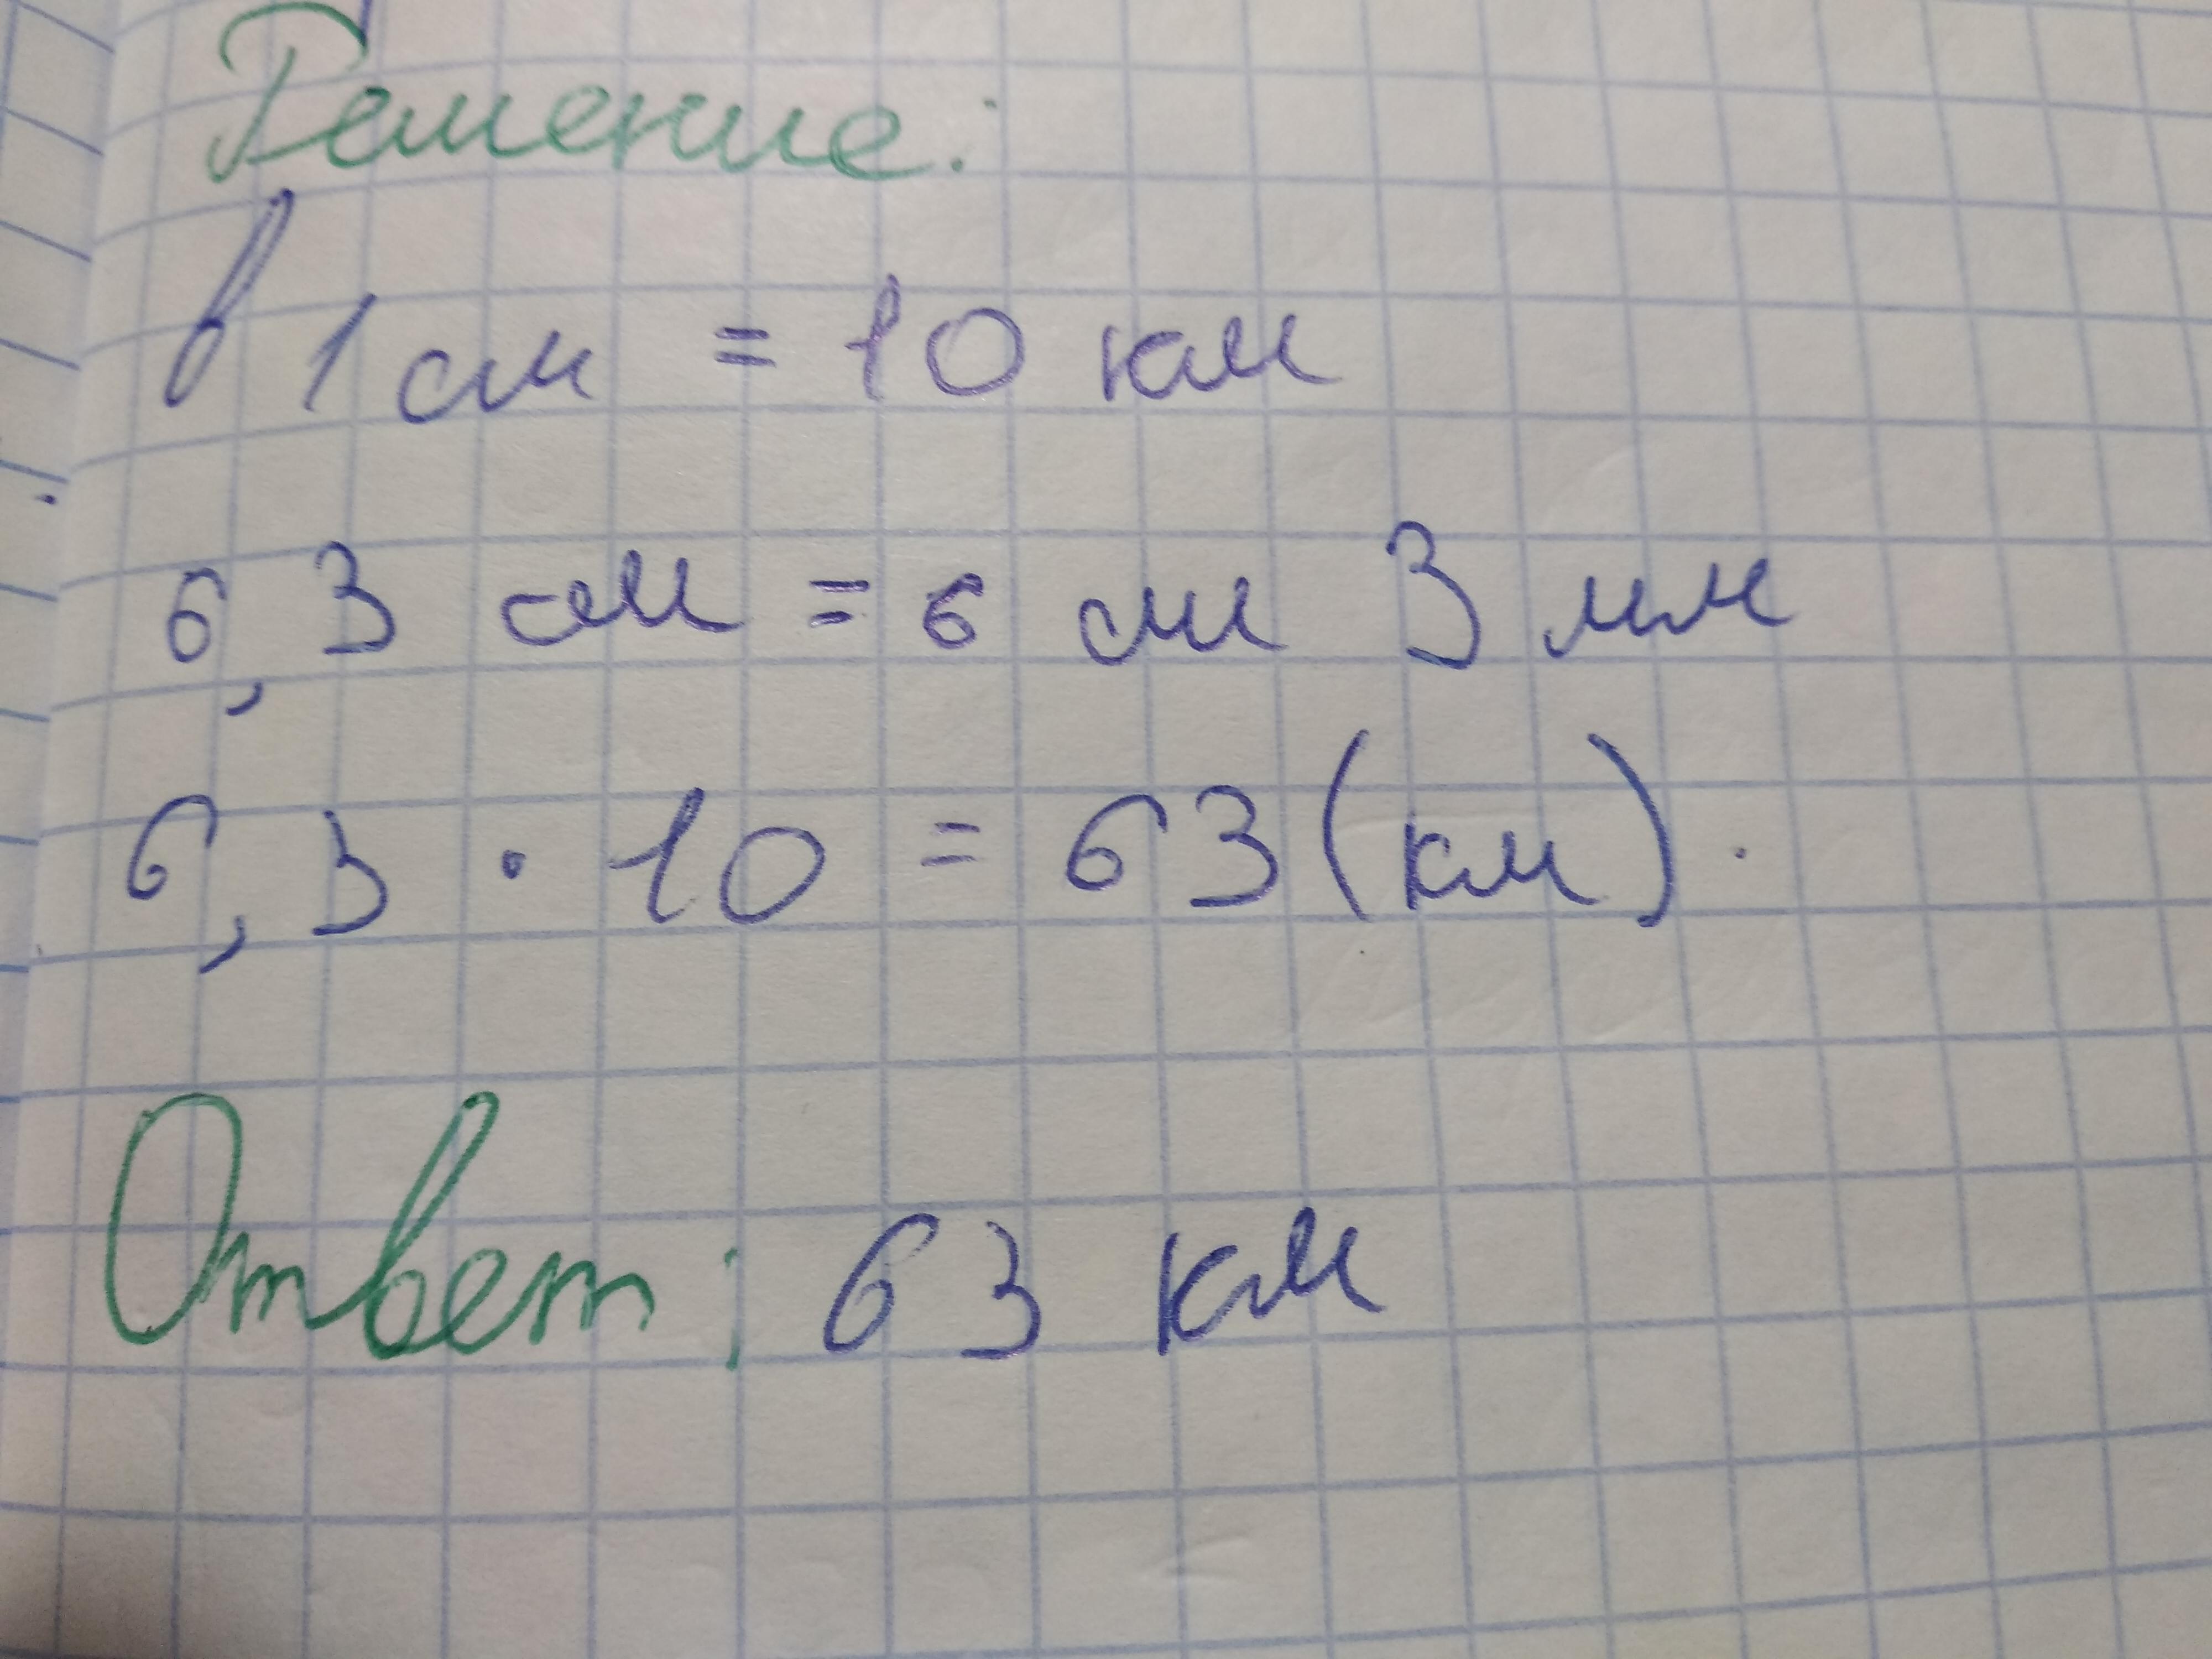 Решение:
В 1 см = 10 км
6,3 см = 6 см 3 мм
6,3 · 10 = 63 (км).
Ответ: 63 км